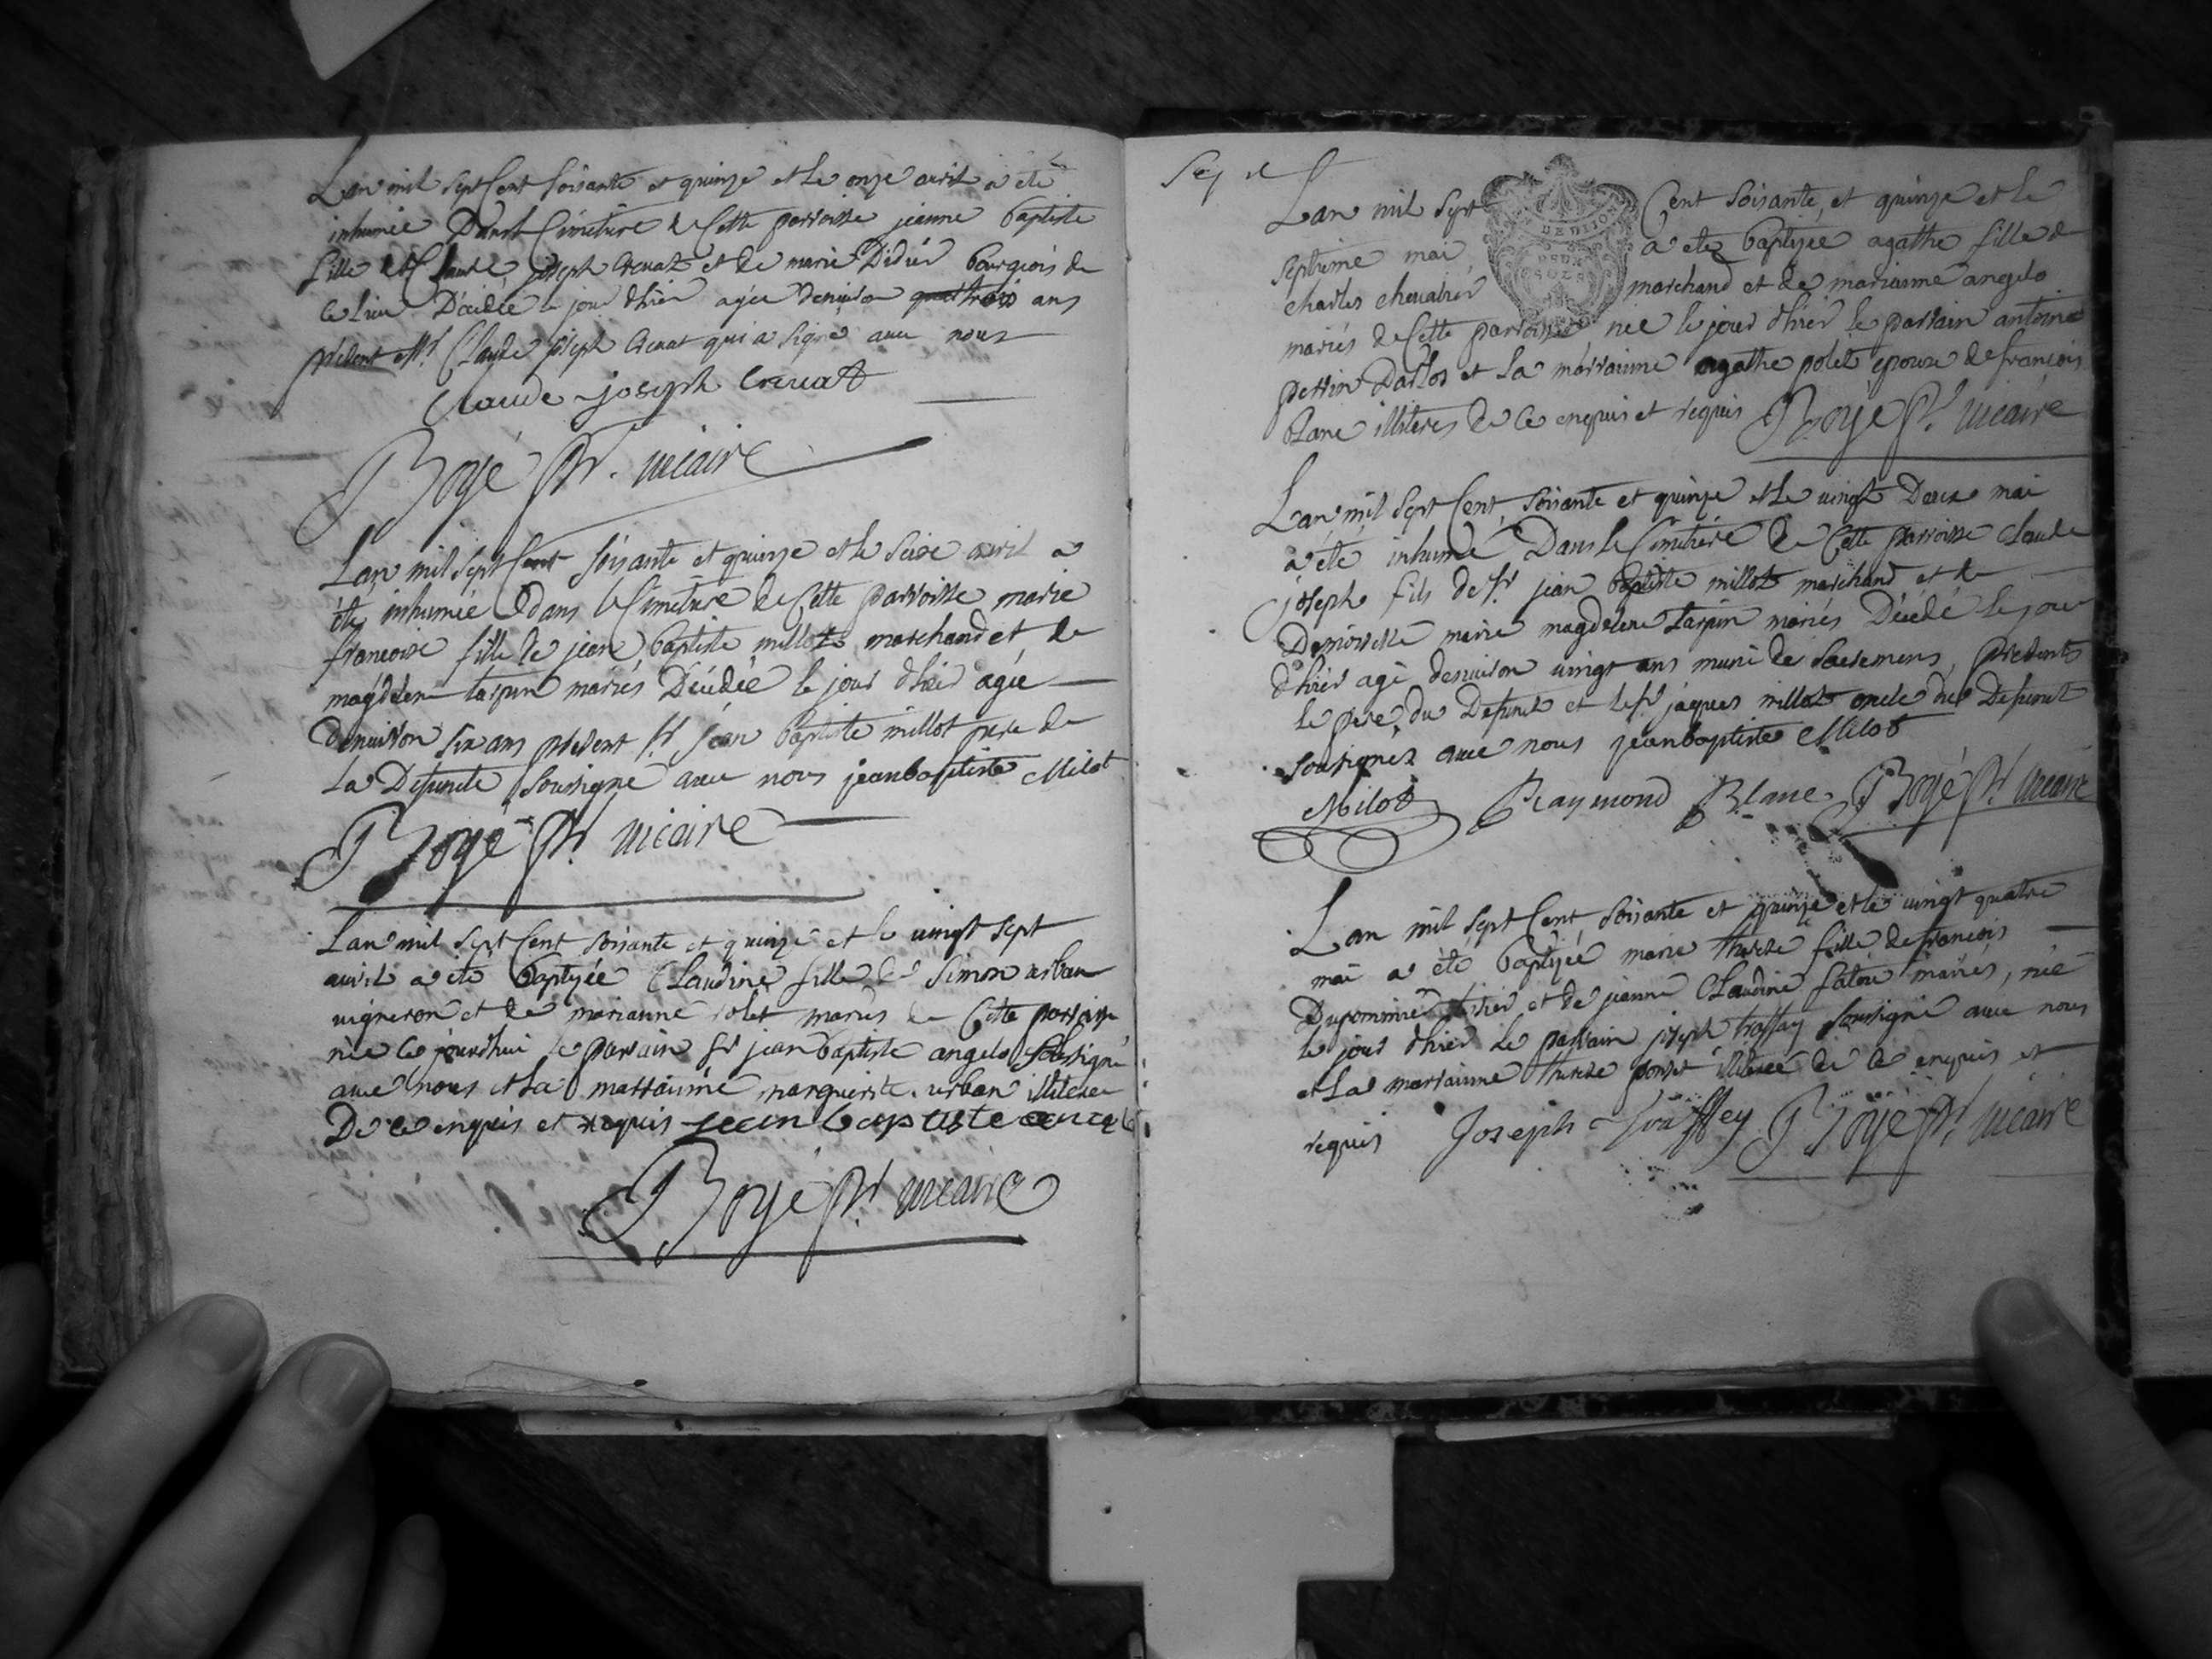 Lan mil sept Cent soisante et quinze et le onze avril a été
inhumée Dans le Cimetiere de Cette parroisse jeanne baptiste
fille de Claude joseph Crevat et de marie Didier bourgeois de
ce lieu Décédée le jour d'hier agée denviron trois ans
présent Mr. Claude joseph Crevat qui a signé avec nous
Claude joseph Crevat
Boyé Ptr. vicaire
Lan mil sept Cent soisante et quinze et le seize avril a
été inhumée dans le Cimetiere de Cette parroisse marie
francoise fille de jean baptiste millot marchand et de
magdelene tarpin mariés Décédée le jour d'hier agée
denviron six ans présent Sr. jean baptiste millot pere de
la Defuncte soussigné avec nous jeanbaptiste Milot
Boyé Ptr. vicaire
Lan mil sept Cent soisante et quinze et le vingt sept
avril a été baptizée Claudine fille de Simon urban
vigneron et de marianne rolet mariés de Cette parroisse
née ce jourdhui le parrain Sr jean baptiste angelo soussigné
avec nous et la marraine marguerite urban illiteree
De ce enquis et requis jean baptiste
Boyé Ptr. vicaire
Lan mil sept Cent soisante, et quinze et le
DE DIJON
DEUX
SOLS
septieme mai a eté baptizée agathe fille de
charles chevalier marchand et de marianne angelo
mariés de Cette parroisse née le jour d'hier le parrain antoine
perrin Darlos et la marraine agathe polet epouse de francois
blanc illiteres de ce enquis et requis Boyé Pt. vicaire
Lan mil sept Cent, soisante et quinze et le vingt Deux mai
a été inhumé Dans le Cimetiere de Cette parroisse Claude
joseph fils de Sr. jean baptiste millot marchand et de
Demoiselle marie magdelene tarpin mariés Décédé le jour
d'hier agé denviron vingt ans muni de sacremens, présents
le pere du Defunct et le Sr jaques millot oncle du Defunct
soussignés avec nous jeanbaptiste Milot
Milot Raymond Blanc Boyé Ptr vicaire
Lan mil sept Cent, soisante et quinze et le vingt quatre
mai a été baptizée marie therese fille de francois
Dupommié et de jeanne Claudine mariés, née
le jour d'hier le parrain joseph traffey soussigné avec nous
et la marraine therese ponset illiteree de ce enquis et
requis Joseph Traffey Boyé Ptr. vicaire